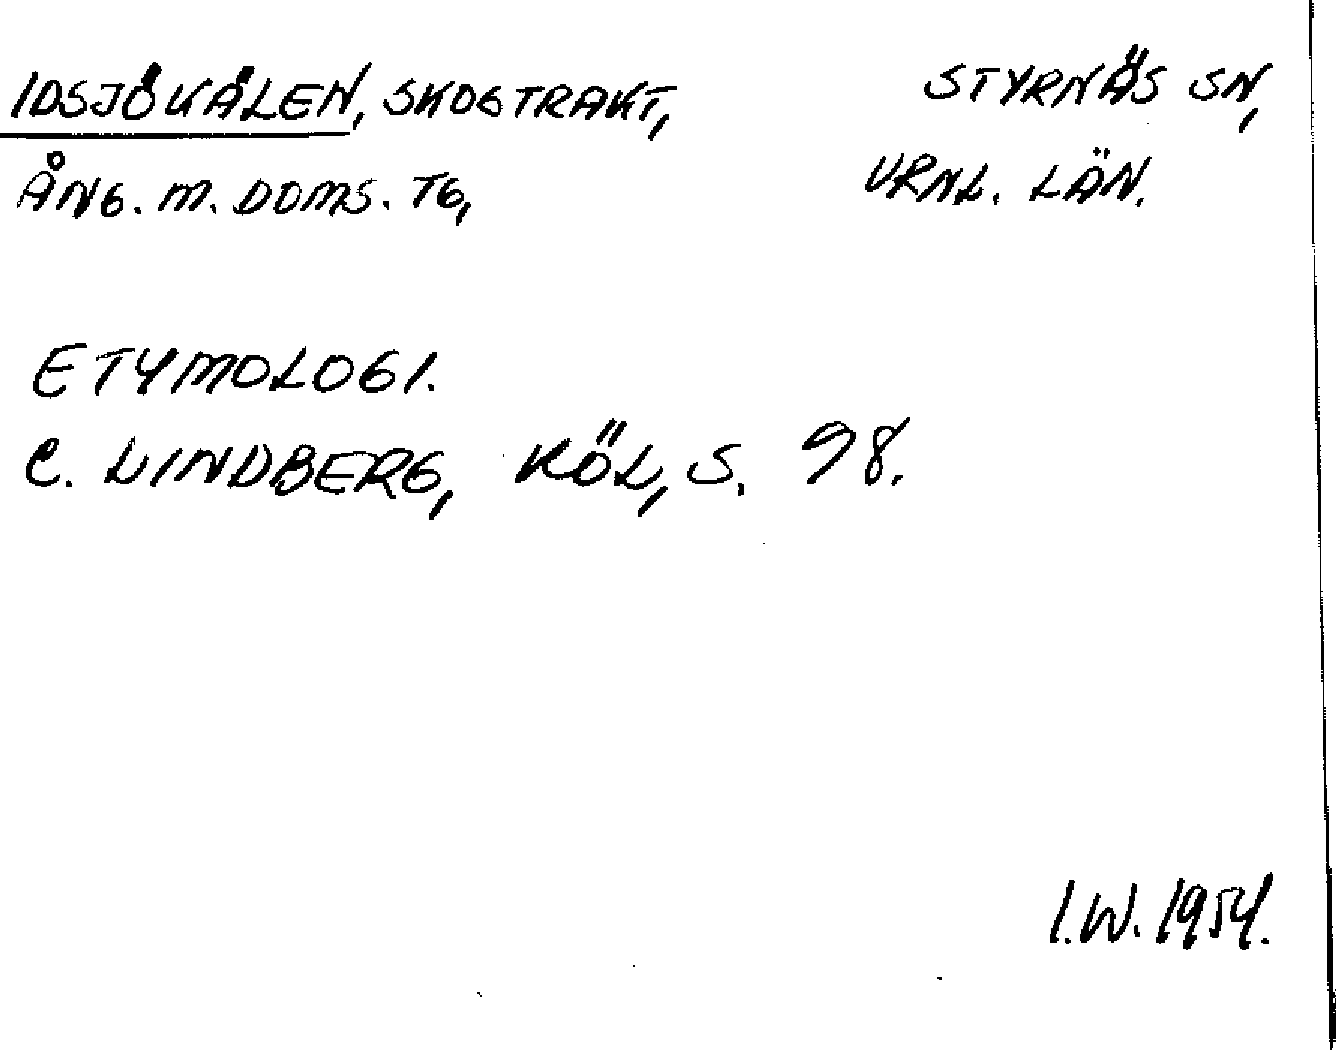 IDSJÖKÅLEN, SKOGTRAKT,
STYRNÄS SN,
ÅNG. M. DOMS. TG,
VRNL. LÄN.
ETYMOLOGI.
C. LINDBERG, KÖL, S. 98.
I.W. 1954.